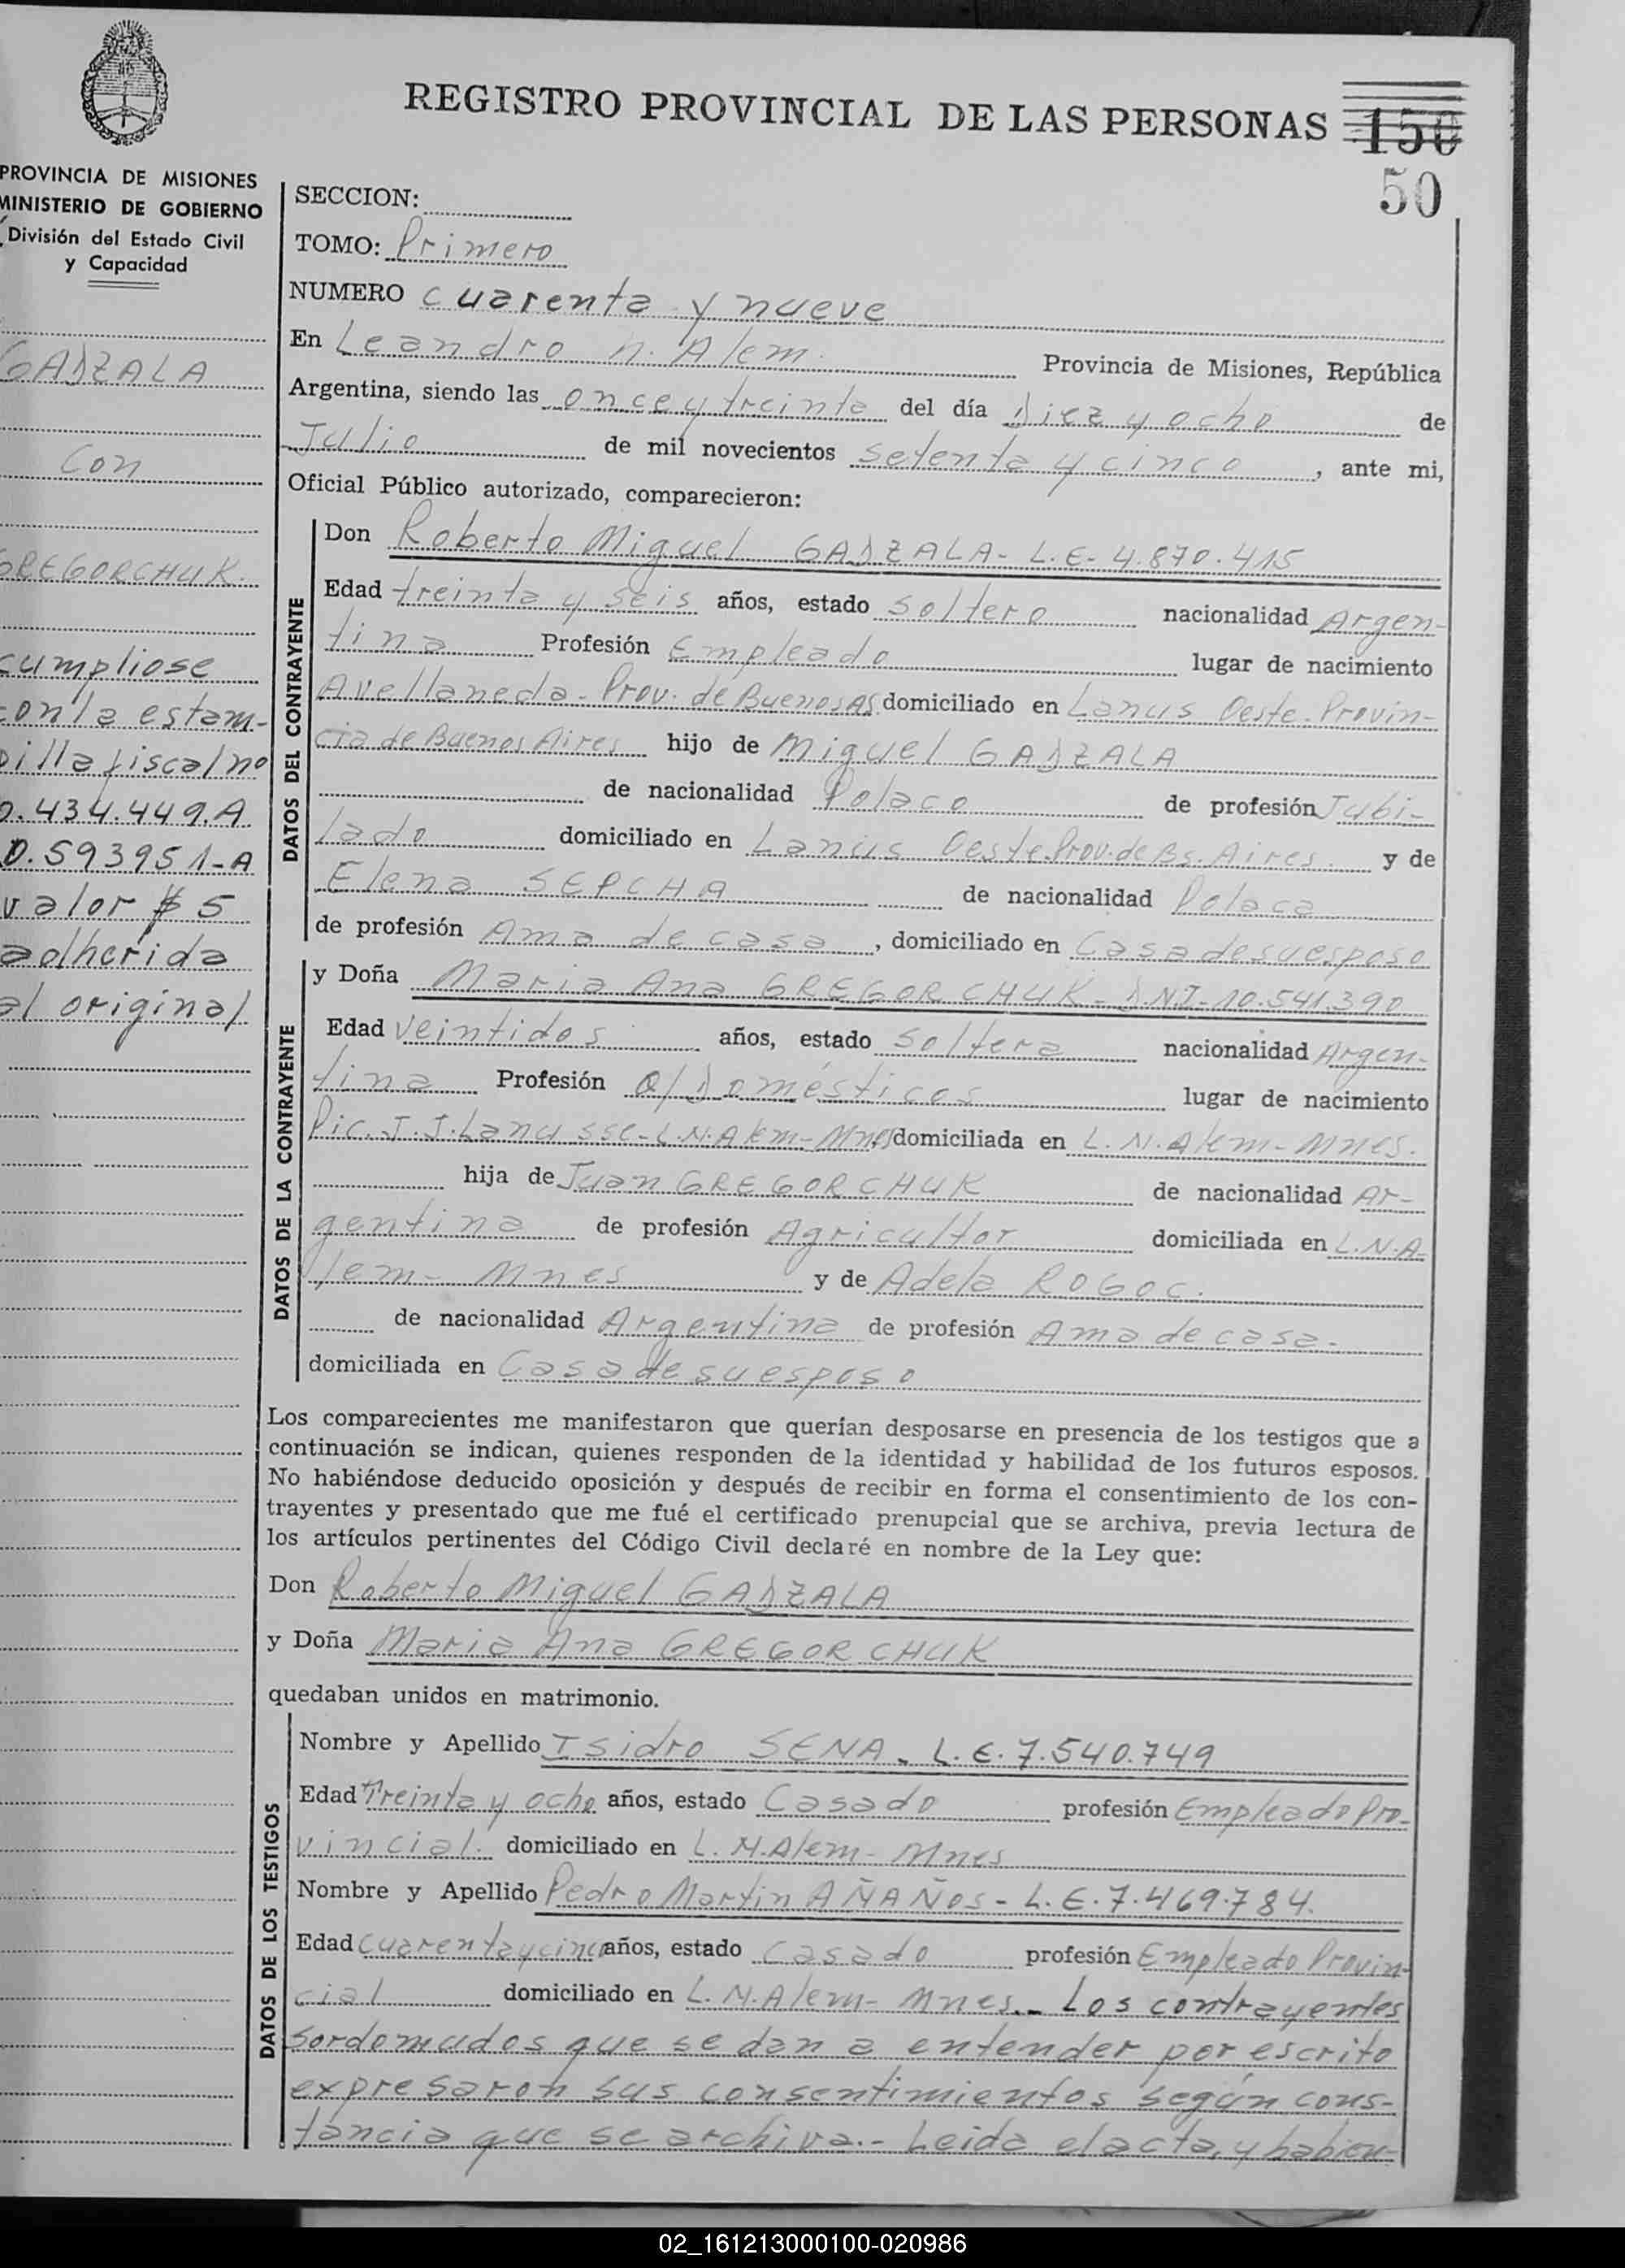 REGISTRO PROVINCIAL DE LAS PERSONAS 150
50
PROVINCIA DE MISIONES
MINISTERIO DE GOBIERNO
División del Estado Civil
y Capacidad
GADZALA
Con
GREGORCHUK.
cumpliose
con la estam-
pilla fiscal nº
0.434.449.A
0.593951-A
valor $ 5
adherida
al original
SECCION:
TOMO: Primero
NUMERO cuarenta y nueve
En Leandro N. Alem. Provincia de Misiones, República
Argentina, siendo las once y treinta del día diez y ocho de
Julio de mil novecientos setenta y cinco, ante mi,
Oficial Público autorizado, comparecieron:
DATOS DEL CONTRAYENTE
Don Roberto Miguel GADZALA- L.E- 4.870.415
Edad treinta y seis años, estado soltero nacionalidad Argen-
tina Profesión Empleado lugar de nacimiento
Avellaneda-Prov. de Buenos As domiciliado en Lanus Oeste-Provin-
cia de Buenos Aires hijo de Miguel GADZALA
de nacionalidad Polaco de profesión Jubi-
lado domiciliado en Lanús Oeste.Prov.de Bs. Aires. y de
Elena SEPCHA de nacionalidad Polaca
de profesión Ama de casa, domiciliado en Casa de su esposo
DATOS DE LA CONTRAYENTE
y Doña Maria Ana GREGORCHUK- DNI-10.541.390
Edad veintidos años, estado soltera nacionalidad Argen-
tina Profesión Q/Domésticos lugar de nacimiento
Pic. J.J.Lanusse-L.N.Alem-Mnes domiciliada en L.N.Alem-Mnes.
hija de Juan GREGORCHUK de nacionalidad Ar-
gentina de profesión Agricultor domiciliada en L.N.A-
lem- Mnes y de Adela ROGOC.
de nacionalidad Argentina de profesión Ama de casa.
domiciliada en Casa de su esposo
Los comparecientes me manifestaron que querían desposarse en presencia de los testigos que a
continuación se indican, quienes responden de la identidad y habilidad de los futuros esposos.
No habiéndose deducido oposición y después de recibir en forma el consentimiento de los con-
trayentes y presentado que me fué el certificado prenupcial que se archiva, previa lectura de
los artículos pertinentes del Código Civil declaré en nombre de la Ley que:
Don Roberto Miguel GADZALA
y Doña Maria Ana GREGORCHUK
quedaban unidos en matrimonio.
DATOS DE LOS TESTIGOS
Nombre y Apellido Isidro SENA- L.E.7.540.749
Edad Treinta y ocho años, estado Casado profesión Empleado Pro-
vincial. domiciliado en L.N.Alem- Mnes
Nombre y Apellido Pedro Martin AÑAÑOS- L.E.7.469.784.
Edad cuarenta y cinco años, estado Casado profesión Empleado Provin-
cial domiciliado en L.N.Alem- Mnes.- Los contrayentes
sordomudos que se dan a entender por escrito
expresaron sus consentimientos según cons-
tancia que se archiva.- Leida el acta, y habien-
02_161213000100-020986